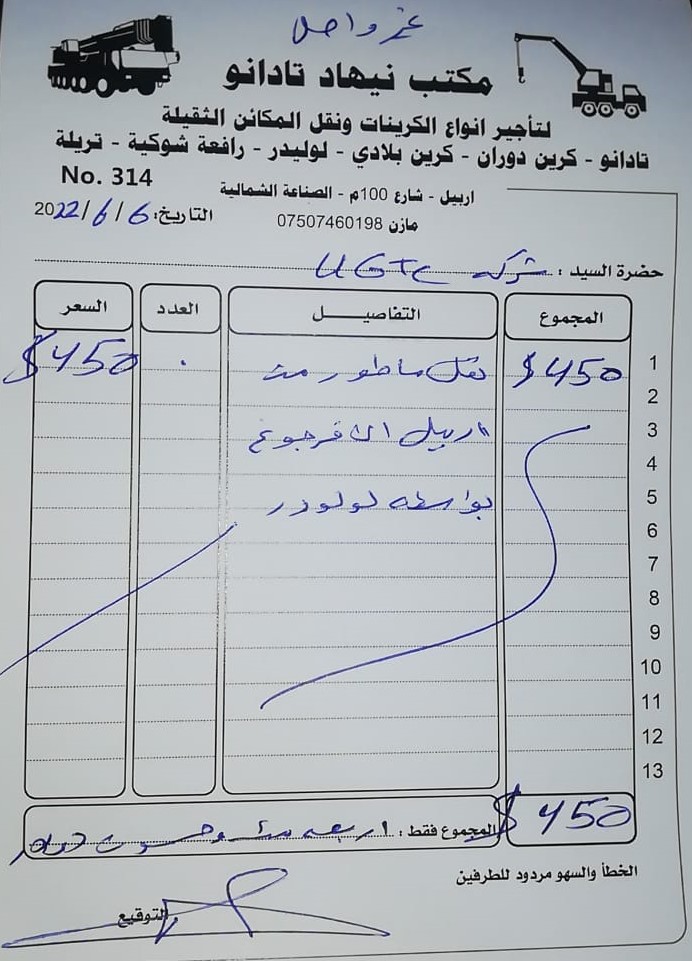 غير واصل
مكتب نيهاد تادانو
لتأجير انواع الكرينات ونقل المكائن الثقيلة
تادانو - كرين دوران - كرين بلادي - لوليدر - رافعة شوكية - تريلة
No. 314
اربيل - شارع 100م - الصناعة الشمالية
التاريخ: 2022/6/6
مازن 07507460198
حضرة السيد : شركه UGTC
المجموع التفاصيــــل العدد السعر
1 $450 نقل ماطور من $450
2
3 اربيل الى
4
5 بواسطه لولودر
6
7
8
9
10
11
12
13
المجموع فقط : اربعه مئه وخمسون دولار $450
الخطأ والسهو مردود للطرفين
التوقيع